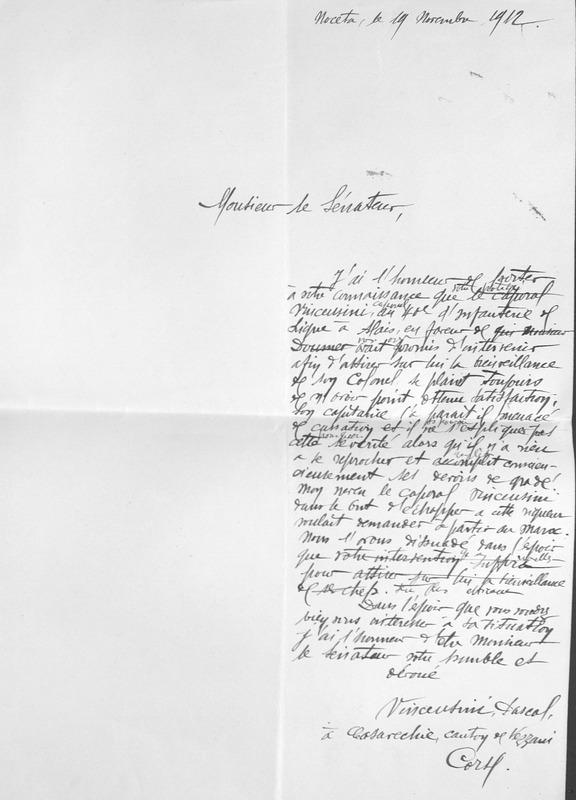 Noceta, le 19 Novembre 1912.
Monsieur le Sénateur,
J'ai l'honneur de porter
à votre connaissance que le caporal
votre protégé
Vincensini, caporal au 40e d'Infanterie de
Ligne à Alais, en faveur de qui Monsieur
Doumer avait promis d'intervenir
afin d'attirer sur lui la bienveillance
de son Colonel se plaint toujours
de n'avoir point obtenu satisfaction.
Son capitaine l'a parait il menacé
de cassation et il ne s'explique pas
cette sévérité alors qu'il n'a rien
à se reprocher et accomplit conscien-
cieusement ses devoirs de gradé.
Mon neveu le caporal Vincensini
dans le but d'échapper à cette rigueur
voulait demander à partir au Maroc.
Nous l'avons dissuadé dans l'espoir
que votre intervention
pour attirer sur lui la bienveillance
de chefs.
Dans l'espoir que vous voudrez
bien vous intéresser à sa situation
j'ai l'honneur d'être Monsieur
le Sénateur votre humble et
dévoué
Vincensini, Pascal,
à Casarecchie, canton de Vezzani
Corse.